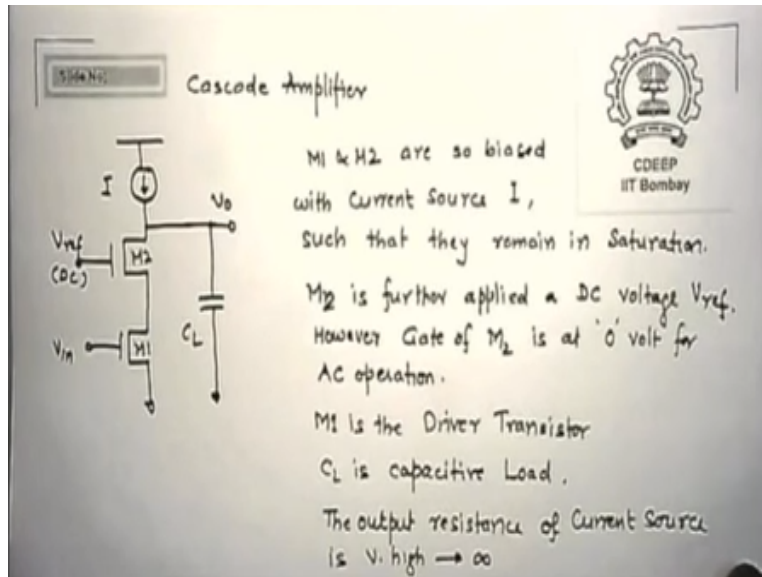 Slide No:
Cascode Amplifier
CDEEP
IIT Bombay
I
Vo
Vref
(DC)
M2
Vin
M1
CL
M1 & M2 are so biased
with Current Source I,
such that they remain in Saturation.
M2 is further applied a DC voltage Vref.
However Gate of M2 is at '0' volt for
AC operation.
M1 is the Driver Transistor
CL is capacitive Load.
The output resistance of Current Source
is v. high → ∞